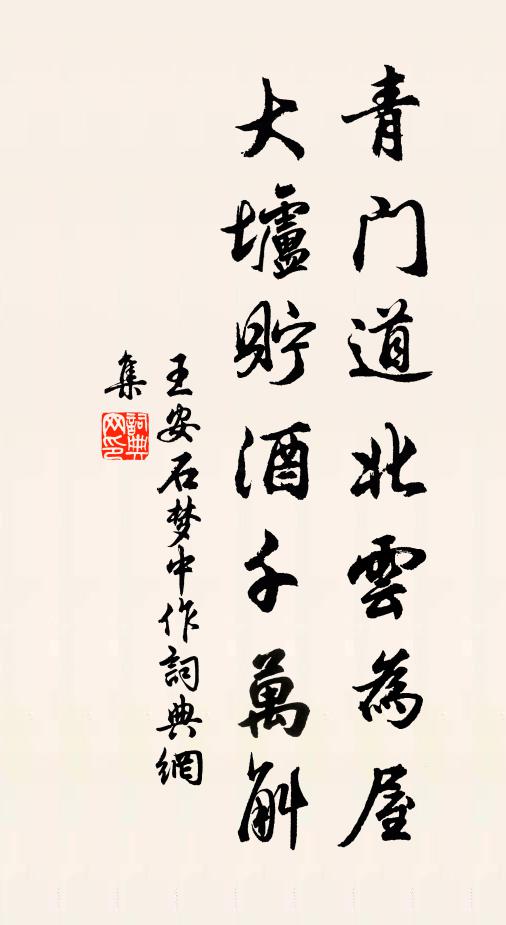 青门道北雲為屋
大壚貯酒千萬斛
王安石梦中作詞典網
集
詞典网印